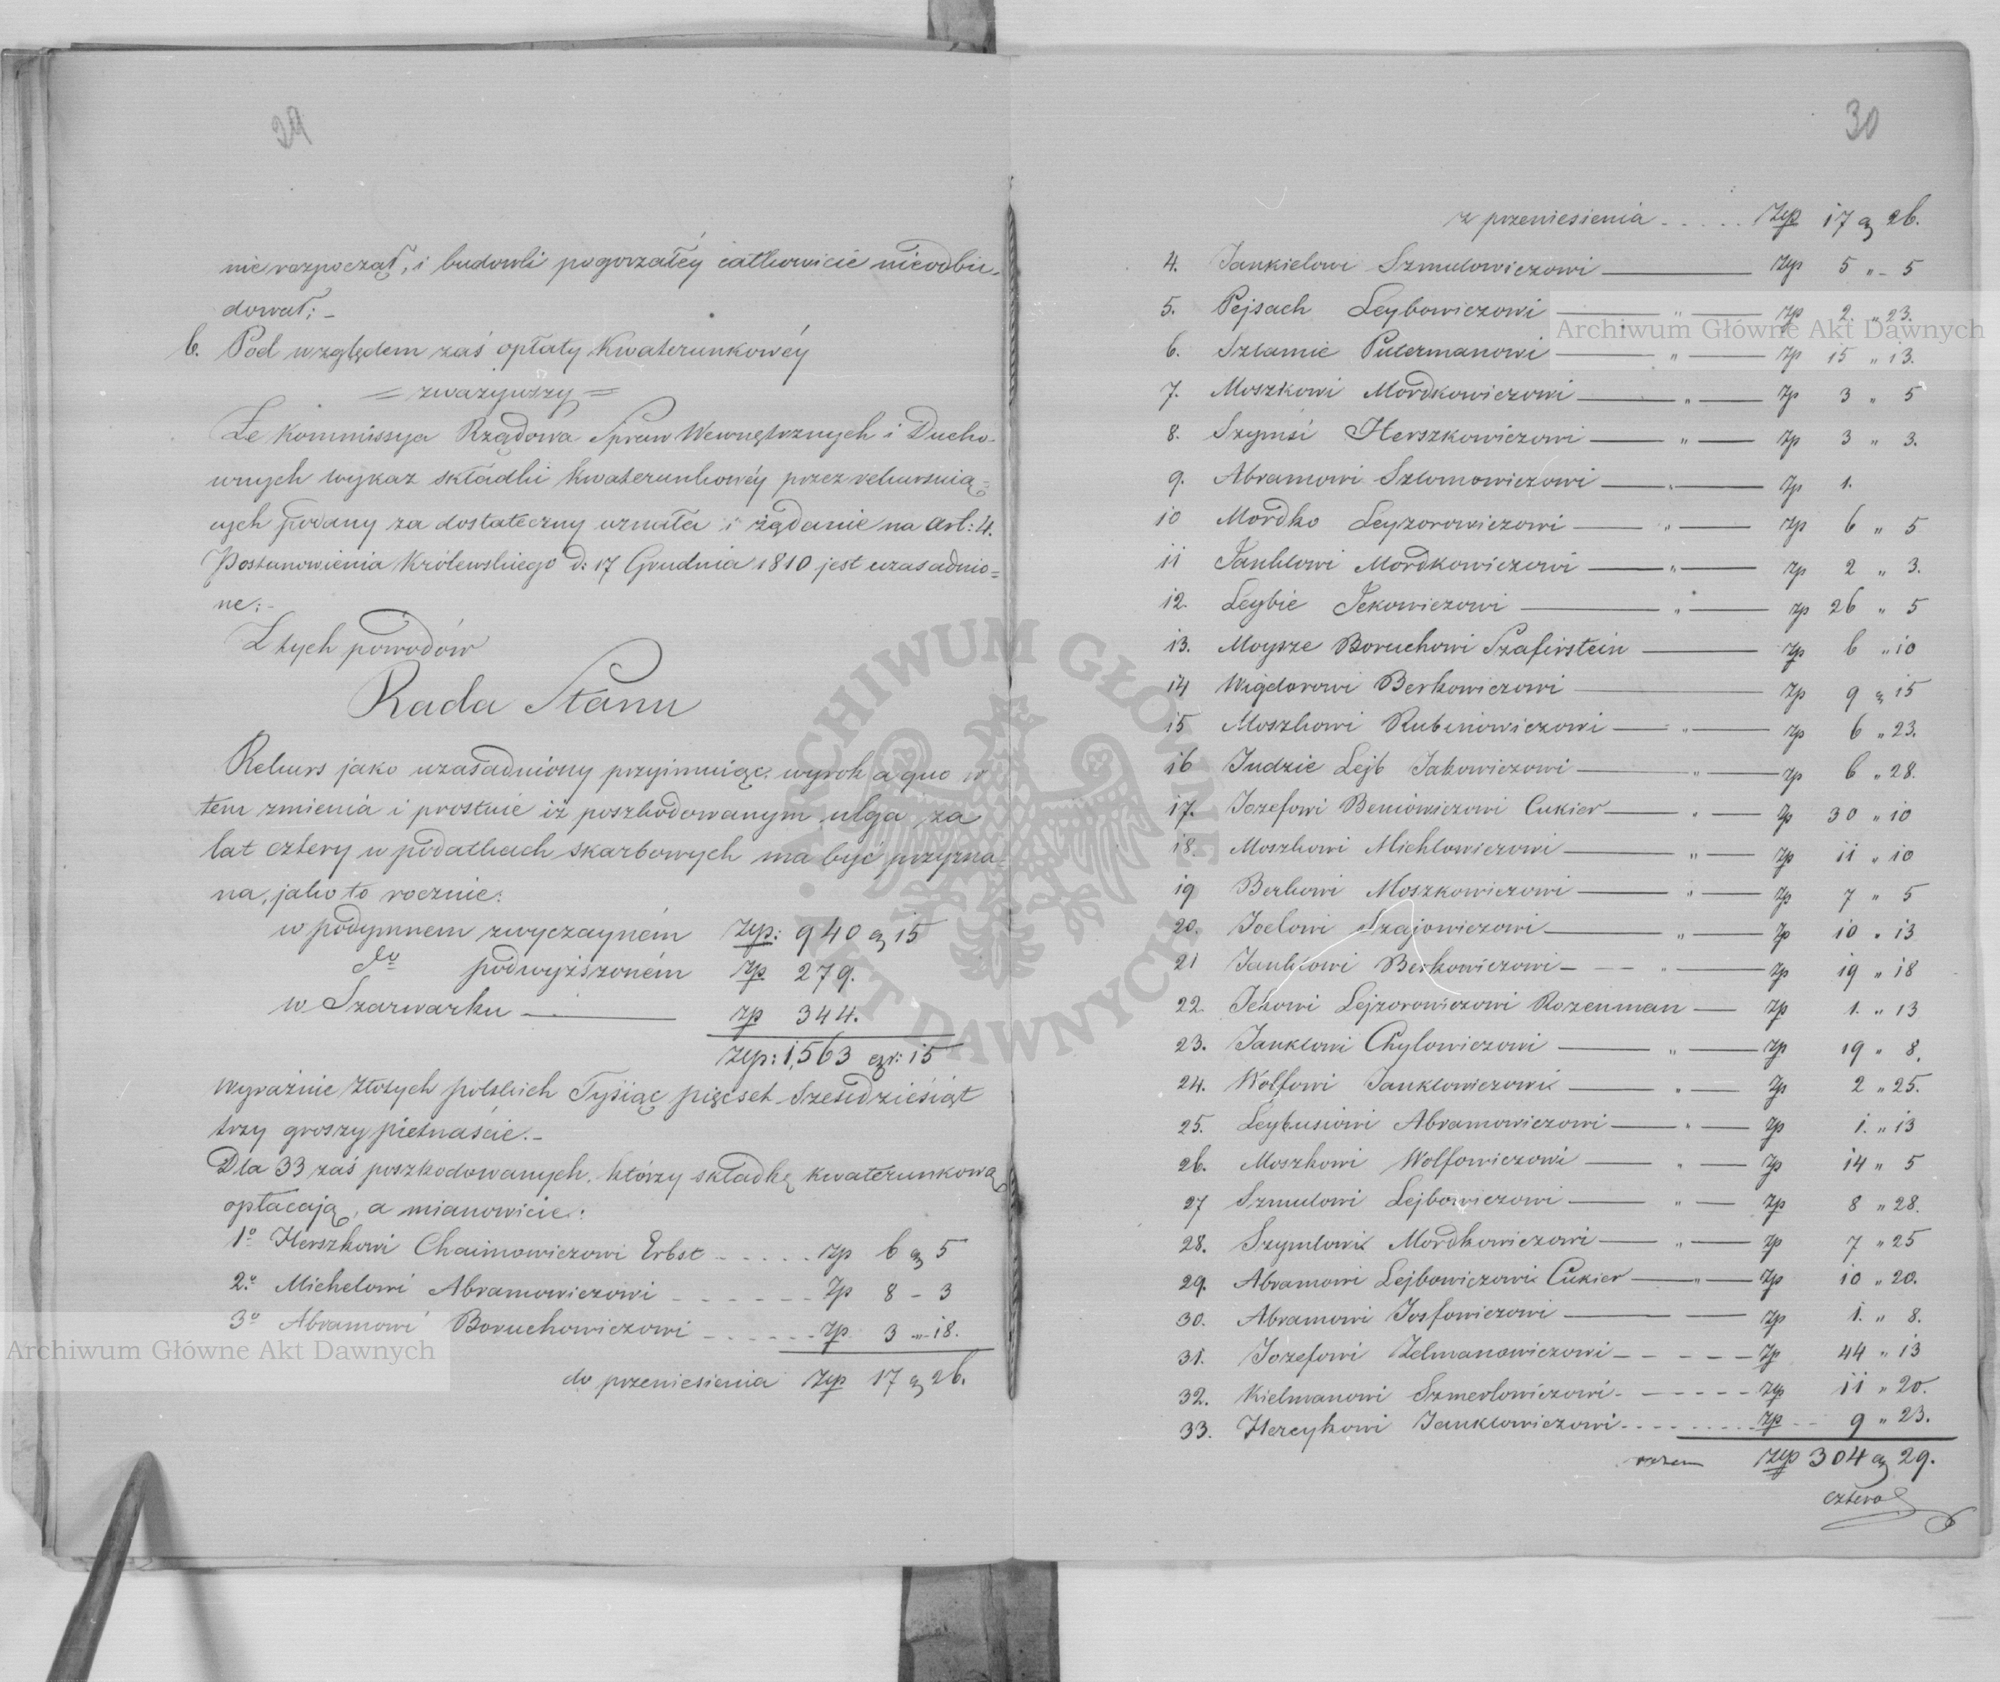 29
nie rozpoczął, i budowli pogorzałéy całkowicie nieodbu-
dował; –
6. Pod względem zaś opłaty Kwaterunkowéy
= zważywszy =
Że Kommissya Rządowa Spraw Wewnętrznych i Ducho-
wnych wykaz składki kwaterunkowéy przez rekursują-
cych podany za dostateczny uznała i żądanie na art: 4.
Postanowienia Królewskiego d: 17 Grudnia 1810 jest uzasadnio=
ne; –
Z tych powodów
Rada Stanu
Rekurs jako uzasadniony przyimuiąc, wyrok a quo w
tem zmienia i prostuie iż poszkodowanym ulga za
lat cztery w podatkach skarbowych ma być przyzna-
na, jako to rocznie:
w podymnem zwyczayném Złp: 940 g 15
do podwyższoném Zp 279.
w Szarwarku — zp 344.
Złp: 1,563 gr: 15
wyraźnie złotych polskich Tysiąc pięćset sześćdziesiąt
trzy groszy piętnaście. –
Dla 33 zaś poszkodowanych, którzy składkę kwaterunkową
opłacają, a mianowicie:
1o Herszkowi Chaimowiczowi Erbst ..... zp 6 g 5
2o Michelowi Abramowiczowi ...... Zp 8 – 3
3o Abramowi Boruchowiczowi ...... Zp. 3 „ 18.
do przeniesienia Złp 17 g 26.
30
z przeniesienia ..... Złp 17 g 26.
4. Jankielowi Szmulowiczowi — Złp 5 „ 5
5. Pejsach Leybowiczowi — „ — Zp 2. „ 23.
6. Szlamie Puterman​owi — „ — Zp 15 „ 13.
7. Moszkowi Mordkowiczowi — „ — Zp 3 „ 5
8. Szymsi Herszkowiczowi — „ — Zp 3 „ 3.
9. Abramowi Szlomowiczowi — „ — Zp 1.
10 Mordko Leyzorowiczowi — „ — Zp 6 „ 5
11 Janklowi Mordkowiczowi — „ — Zp 2 „ 3.
12. Leybie Jekowiczowi — „ — zp 26 „ 5
13. Moysze Boruchowi Szafirstein — zp 6 „ 10
14 Wigdorowi Berkowiczowi — Zp 9 g 15
15 Moszkowi Rubinowiczowi — „ — Zp 6 „ 23.
16 Judzie Lejb Jakowiczowi — „ — Zp 6 „ 28.
17. Jozefowi Beniowiczowi Cukier — „ — Zp 30 „ 10
18. Moszkowi Michlowiczowi — „ — Zp 11 „ 10
19 Berkowi Moszkowiczowi — „ — Zp 7 „ 5
20. Joelowi Szajowiczowi — „ — Zp 10 „ 13
21 Janklowi Berkowiczowi — „ — Zp 19 „ 18
22. Jekowi Lejzorowiczowi Rozenman — Zp 1. „ 13
23. Janklowi Chylowiczowi — „ — Zp 19 „ 8.
24. Wolfowi Janklowiczowi — „ — Zp 2 „ 25.
25. Leybusiowi Abramowiczowi — „ — Zp 1. „ 13
26. Moszkowi Wolfowiczowi — „ — Zp 14 „ 5
27 Szmulowi Lejbowiczowi — „ — Zp 8 „ 28.
28. Szymlowi Mordkowiczowi — „ — Zp 7 „ 25
29. Abramowi Lejbowiczowi Cukier — „ — Zp 10 „ 20.
30. Abramowi Josfowiczowi — Zp 1. „ 8.
31. Jozefowi Zelmanowiczowi – – – – – Zp 44 „ 13
32. Kielmanowi Szmerlowiczowi – – – – – Zp 11 „ 20.
33. Hercykowi Janklowiczowi ........ Zp 9 „ 23.
razem Złp 304 g 29.
cztero
Archiwum Główne Akt Dawnych
Archiwum Główne Akt Dawnych
ARCHIWUM GŁÓWNE AKT DAWNYCH